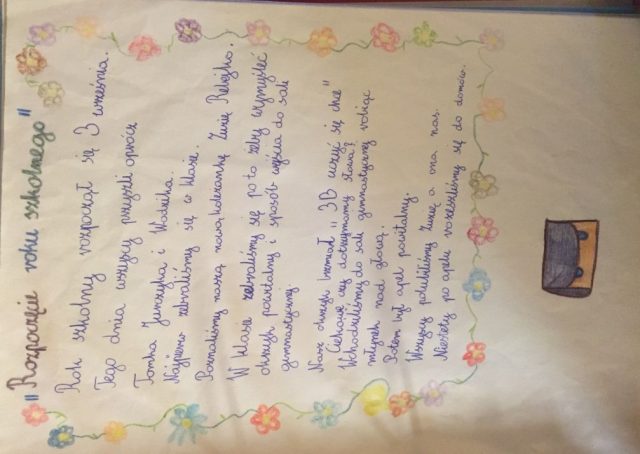 "Rozpoczęcie roku szkolnego"
Rok szkolny rozpoczął się 3 września.
Tego dnia wszyscy przyszli oprócz
Tomka Jurczyka i Wodzika.
Najpierw zebraliśmy się w klasie.
Poznaliśmy naszą nową koleżankę Zuzię
W klasie zebraliśmy się po to żeby wymyśleć
okrzyk powitalny i sposób wejścia do sali
gimnastycznej.
Nasz okrzyk brzmiał "3B uczyć się chce"
Ciekawe czy dotrzymamy słowa?
Wchodziliśmy do sali gimnastycznej robiąc
młynek nad głową.
Potem był apel powitalny.
Wszyscy polubiliśmy Zuzię a ona nas.
Niestety po apelu rozeszliśmy się do domów.